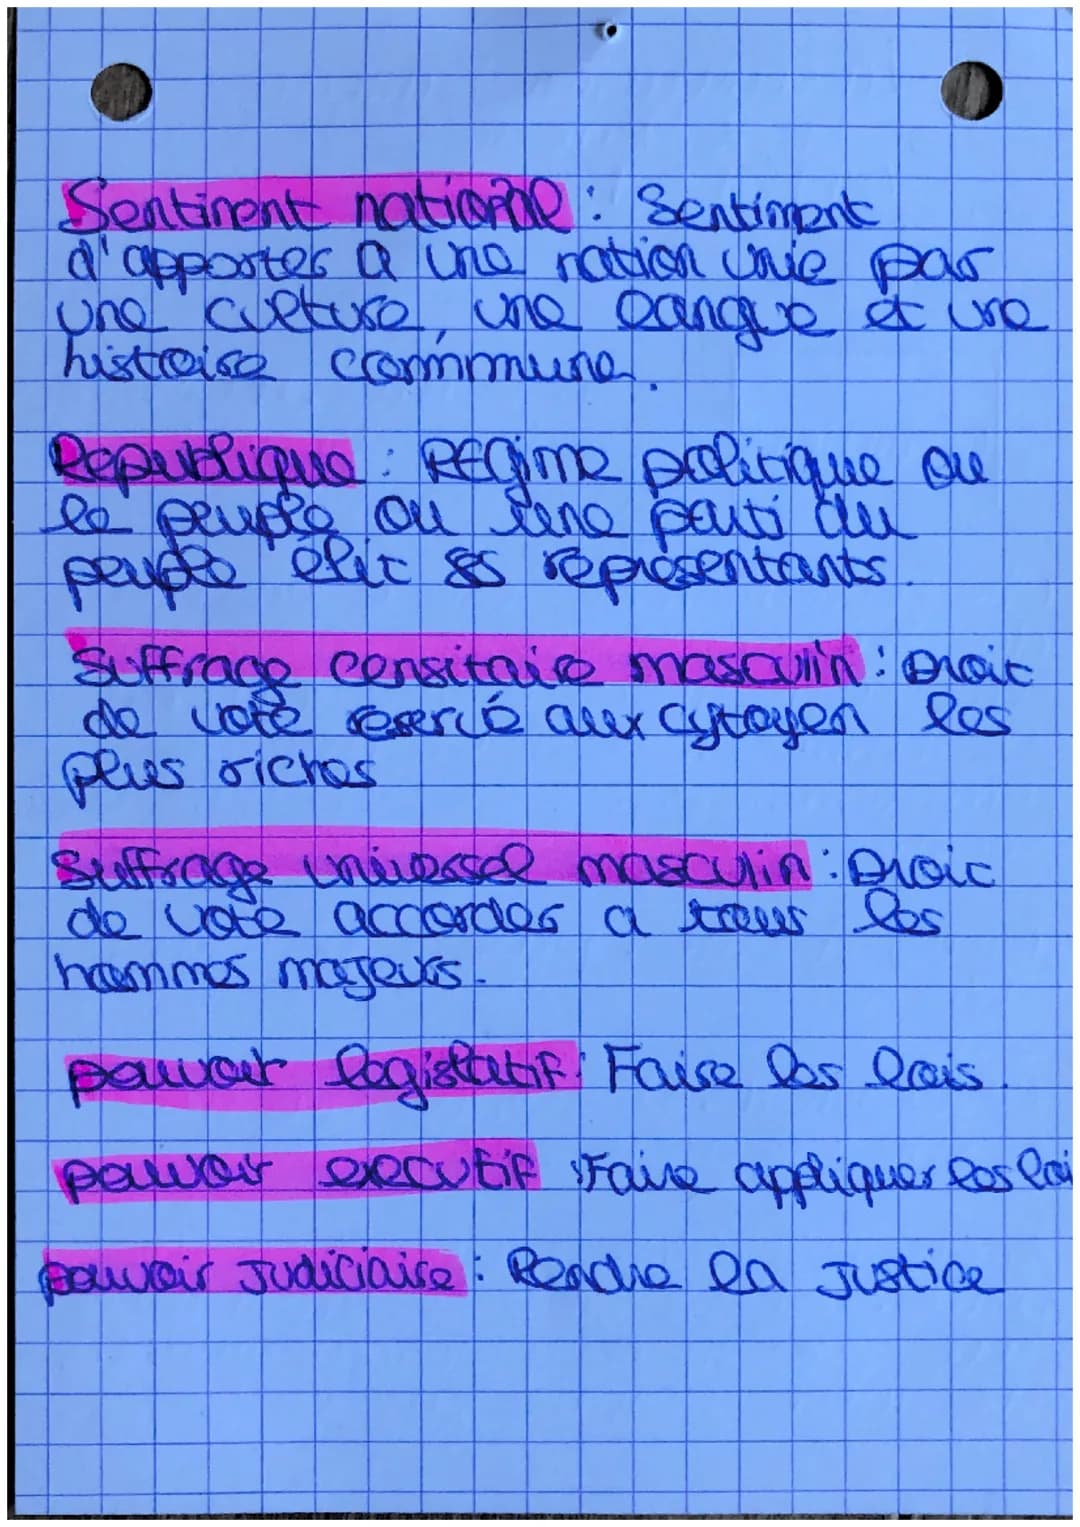 Sentiment national : Sentiment
d'apporter a une nation unie par
une culture, une langue et une
histoire commmune.
Republique : REGime politique ou
le peuple ou une parti du
peuple élit ses représentants.
Suffrage censitaire masculin : Droit
de vote réservé aux cytoyen les
plus riches
Suffrage universel masculin : Droit
de vote accorder a tous les
hommes majeurs.
pouvoir legislatif : Faire les lois.
pouvoir executif : Faire appliquer les loi
pouvoir Judiciaire : Rendre la Justice